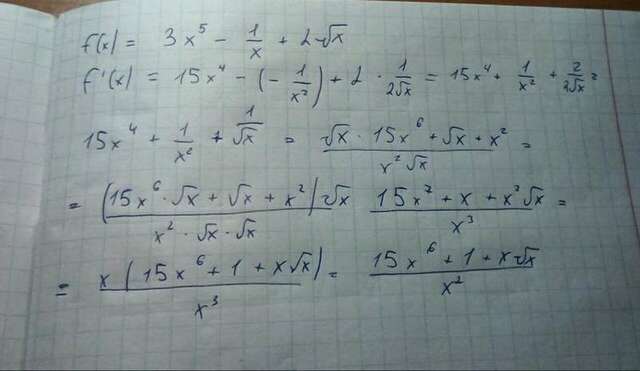 f(x) = 3x⁵ - 1/x + 2√x
f'(x) = 15x⁴ - (-1/x²) + 2 · 1/(2√x) = 15x⁴ + 1/x² + 2/(2√x) =
15x⁴ + 1/x² + 1/√x = (√x · 15x⁶ + √x + x²)/(x²√x) =
= ((15x⁶ · √x + √x + x²)√x)/(x² · √x · √x) (15x⁷ + x + x²√x)/x³ =
= x(15x⁶ + 1 + x√x)/x³ = (15x⁶ + 1 + x√x)/x²